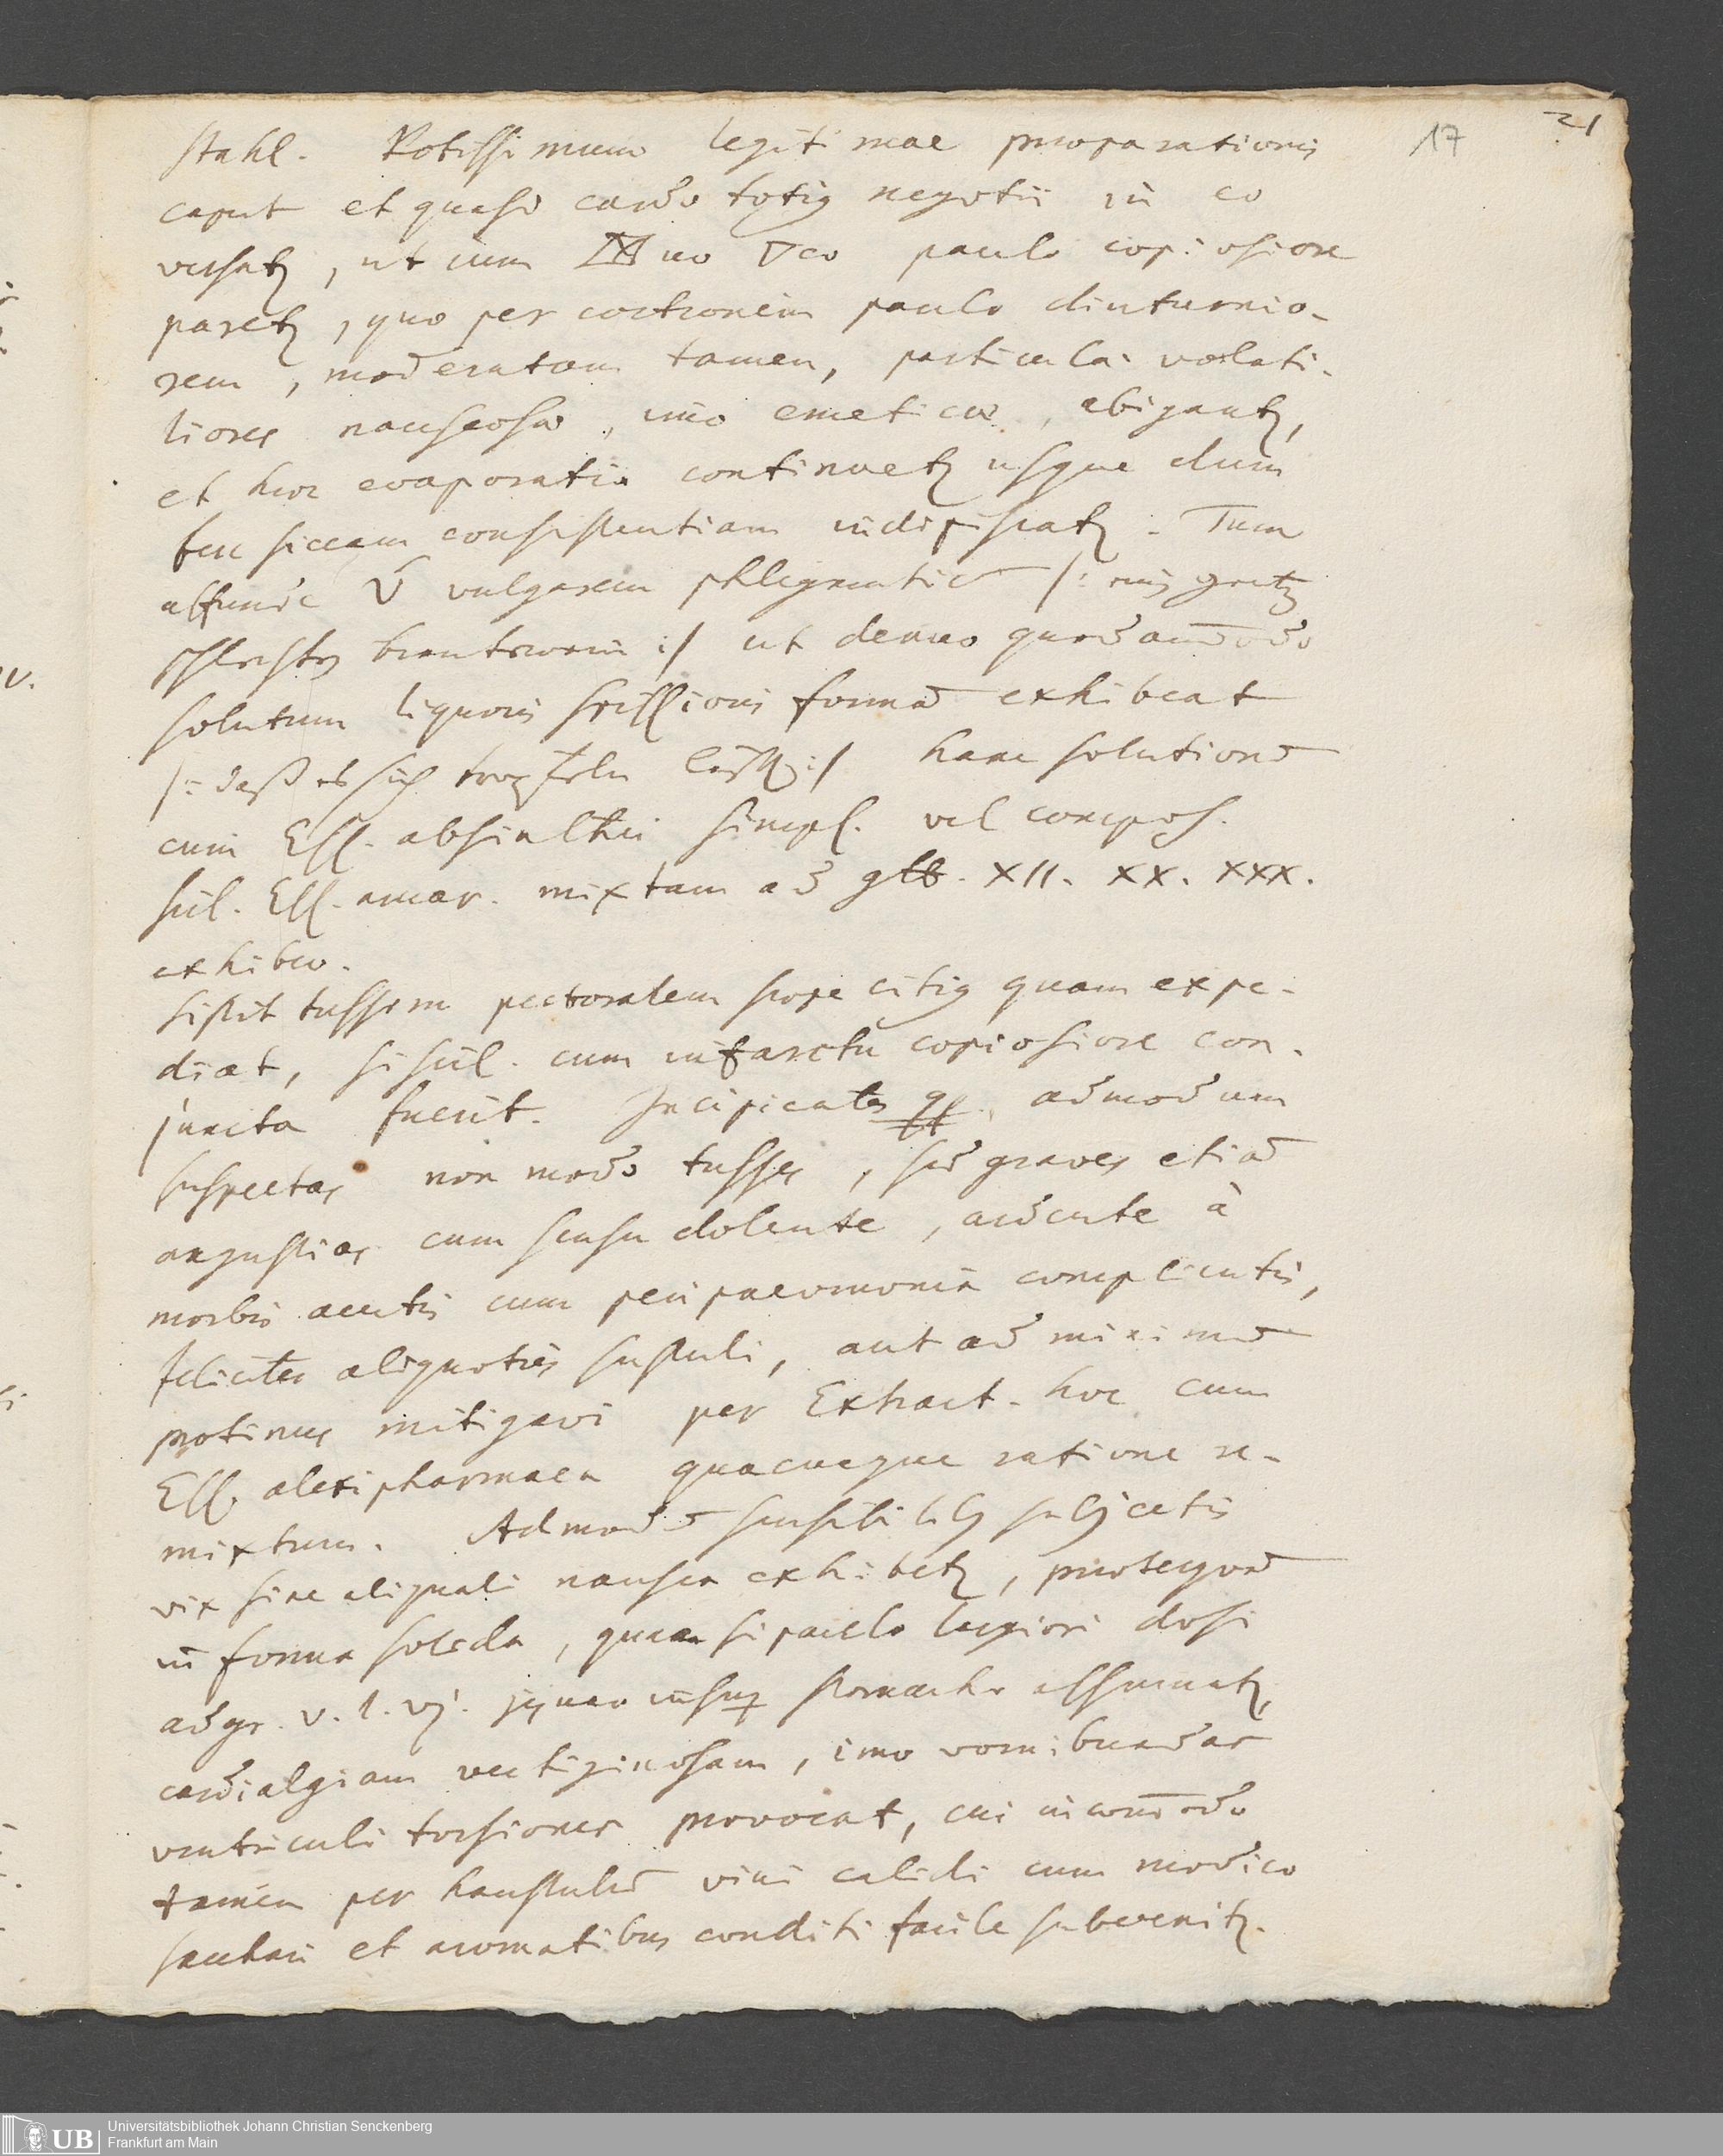 17
21
Stahl. Potissimum legitimae praeparationis
caput et quasi cardo totius negotii in eo
versatur, ut cum paulo copiosiore
paretur, quo per coctionem paulo diuturnio-
rem, moderatam tamen, particulae volati-
liores nauseosae, imo emeticae, abigantur,
et hoc evaporatio continuetur usque dum
fere siccam consistentiam indipiscatur. Tum
affunde V vulgarem phlegmatic /: ein gantz
schlechter brantewein :/ ut denuo quodam̅odo
solutum liquoris spissioris formam exhibeat
/: daß es sich tropfeln läst :/ hanc solutionem
cum Ess. absinthii simpl. vel compos.
sil. Ess. amar. mixtam ad gtt. XII. XX. XXX.
exhibeo.
Sistit tussem pectoralem saepe citius quam expe-
diat, si sil. cum infarctu copiosiore con-
juncta fuerit. Incipientes admodum
suspectas non modo tusses, sed graves etiam
angustias cum sensu dolente, ardente à
morbis acutis cum peripneumonia complicatis,
feliciter aliquoties sustuli, aut ad minimum
protinus mitigavi per Extract. hoc cum
Ess. alexipharmaca quacunque ratione re-
mixtum. Admodum sensibilibus subjectis
vix sine aliquali nausea exhibetur, praeterquam
in forma solida, quam si paulo largiori dosi
ad gr. v. l. vj. jejuno insuper stomacho assumatur,
cardialgiam vertiginosam, imo vomibundas
ventriculi torsiones provocat, cui incom̅odo
tamen per haustulum vini calidi cum modico
sacchari et aromatibus conditi facile subvenitur.
Universitätsbibliothek Johann Christian Senckenberg
Frankfurt am Main
UB